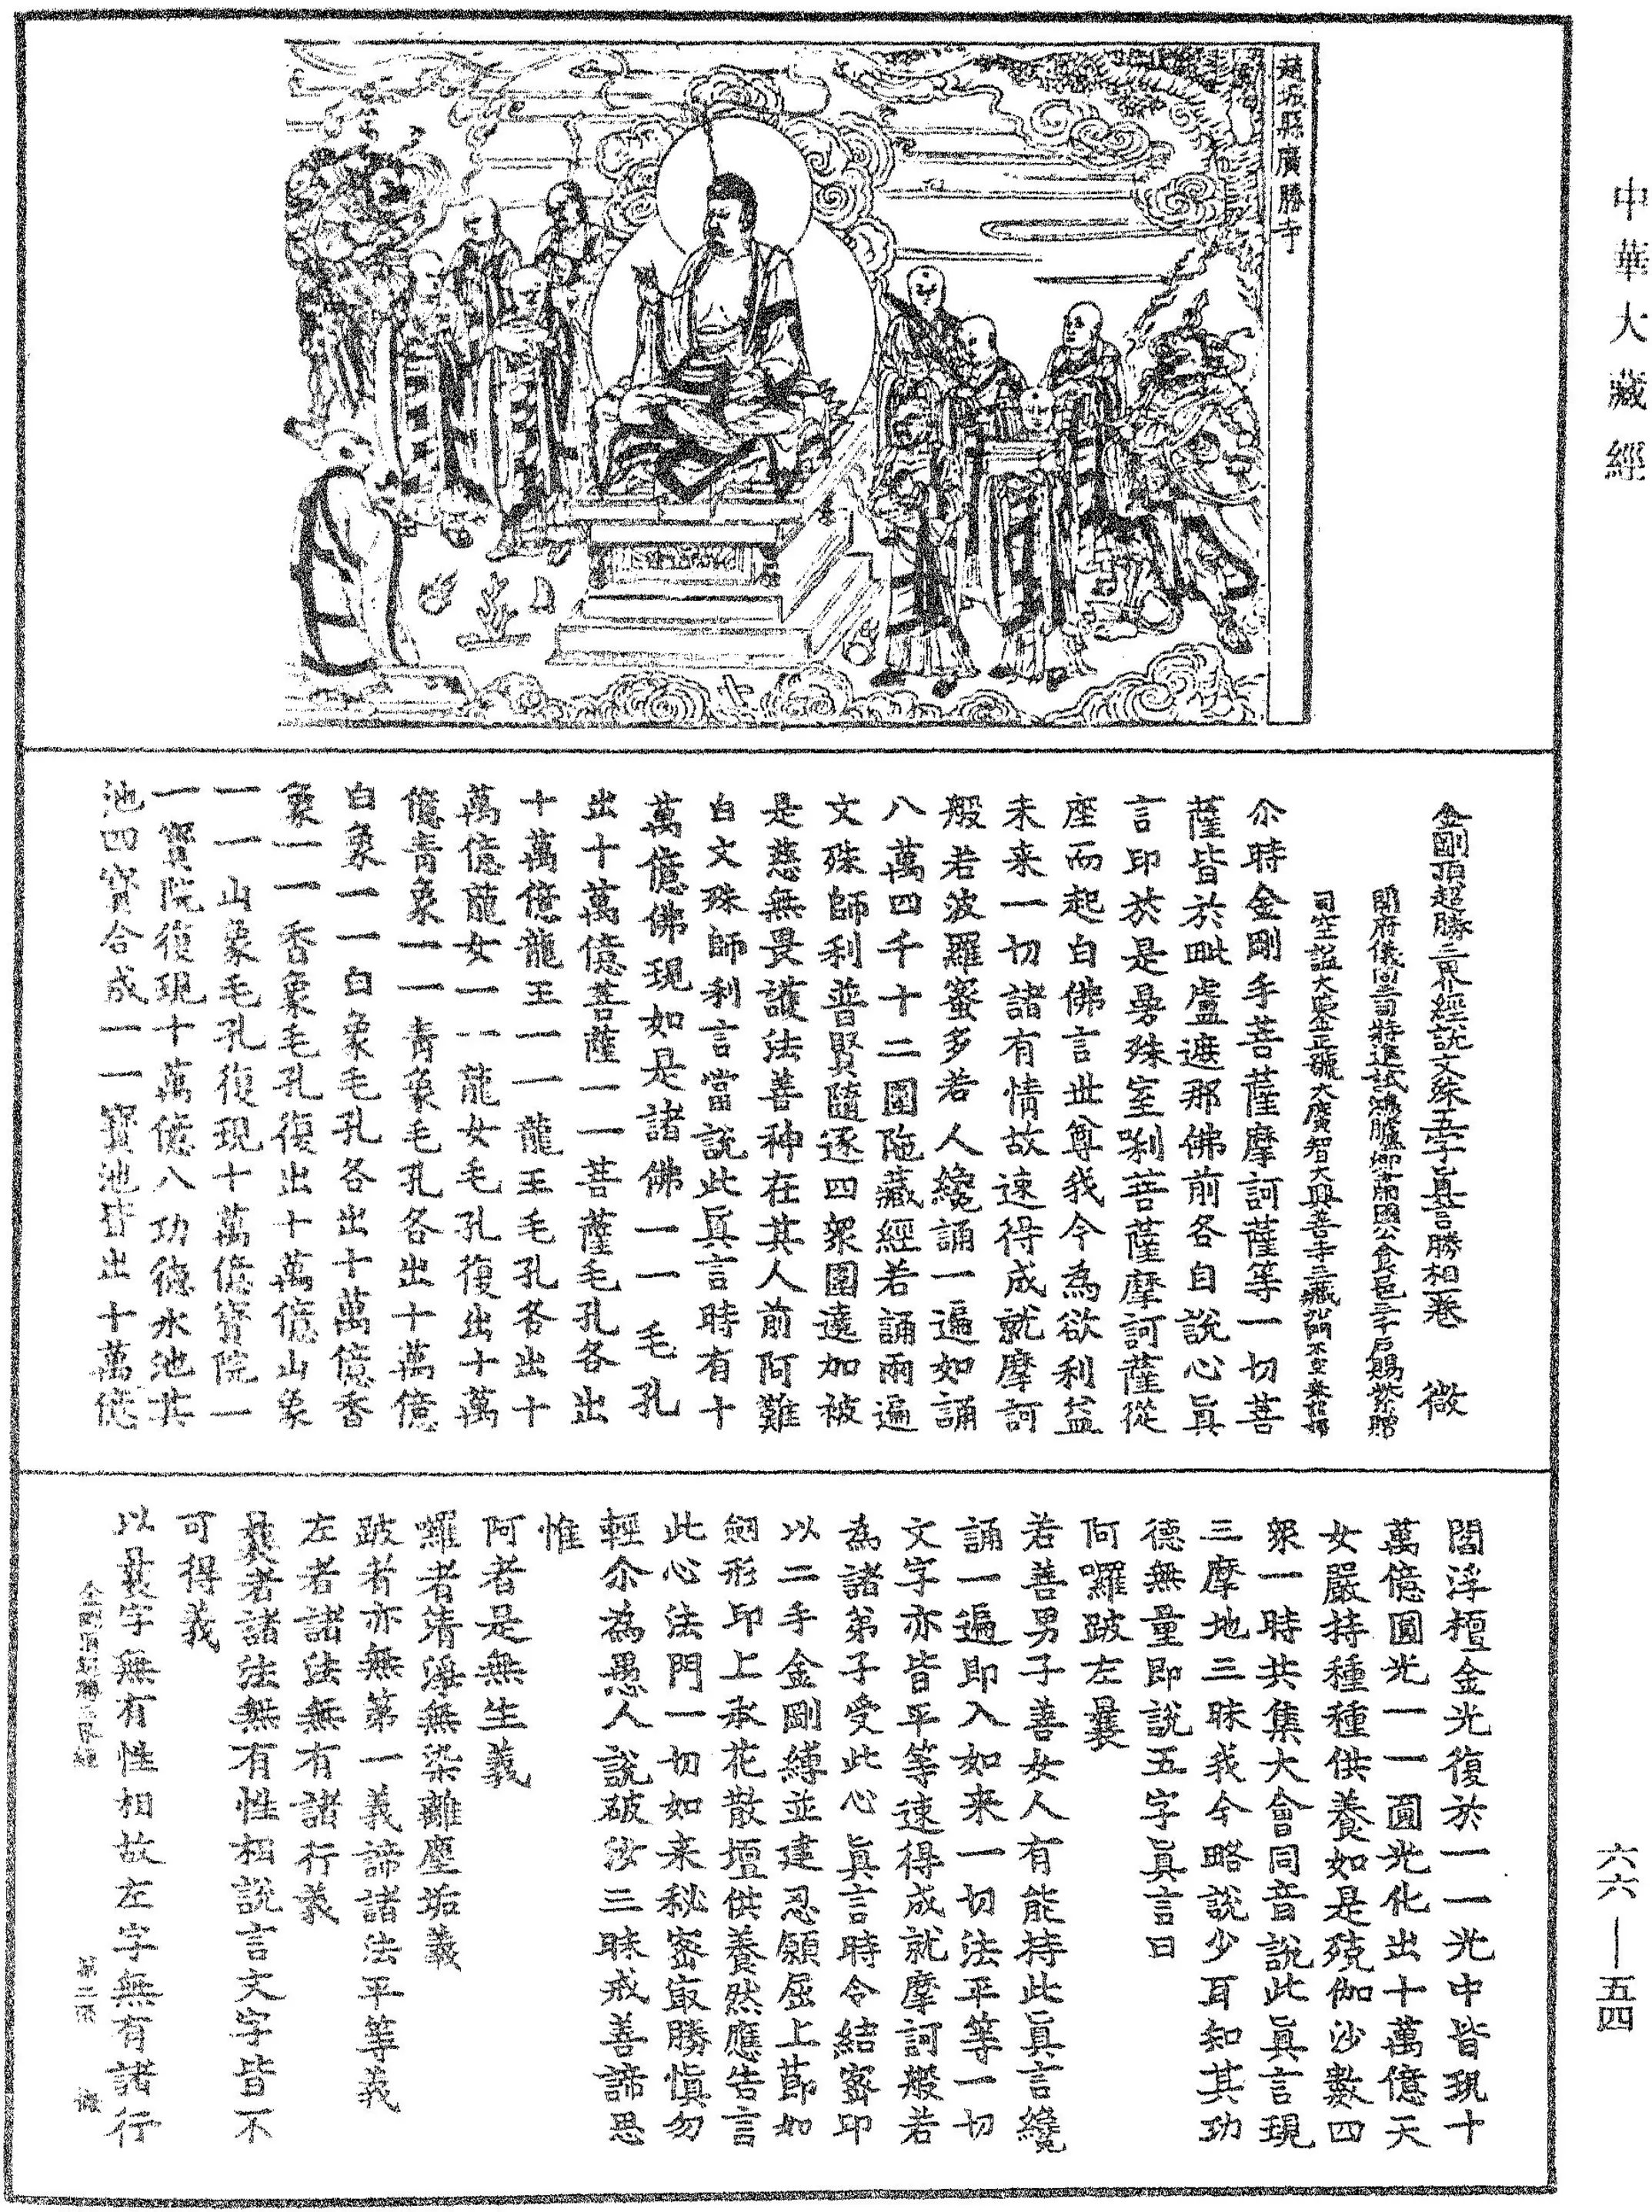 中華大藏經
趙城縣廣勝寺
金剛頂超勝三界經說文殊五字眞言勝相一卷 微
開府儀同三司特進試鴻臚卿肅國公食邑三千戶賜紫贈
司空謚大鑒正號大廣智大興善寺三藏沙門不空奉詔譯
尒時金剛手菩薩摩訶薩等一切菩
薩皆於毗盧遮那佛前各自說心眞
言印於是曼殊室唎菩薩摩訶薩從
座而起白佛言世尊我今為欲利益
未来一切諸有情故速得成就摩訶
般若波羅蜜多若人纔誦一遍如誦
八萬四千十二圍陁藏經若誦兩遍
文殊師利普賢隨逐四衆圍遶加被
是慈無畏護法善神在其人前阿難
白文殊師利言當說此眞言時有十
萬億佛現如是諸佛一一毛孔
出十萬億菩薩一一菩薩毛孔各出
十萬億龍王一一龍王毛孔各出十
萬億龍女一一龍女毛孔復出十萬
億青象一一青象毛孔各出十萬億
白象一一白象毛孔各出十萬億香
象一一香象毛孔復出十萬億山象
一一山象毛孔復現十萬億寶院一
一寶院復現十萬億八功德水池其
池四寶合成一一寶池皆出十萬億
閻浮檀金光復於一一光中皆現十
萬億圓光一一圓光化出十萬億天
女嚴持種種供養如是殑伽沙數四
衆一時共集大會同音說此眞言現
三摩地三昧我今略說少耳知其功
德無量即說五字眞言曰
阿囉跛左曩
若善男子善女人有能持此眞言纔
誦一遍即入如来一切法平等一切
文字亦皆平等速得成就摩訶般若
為諸弟子受此心眞言時令結密印
以二手金剛縛並建忍願屈上節如
劒形印上承花散壇供養然應告言
此心法門一切如来秘密最勝愼勿
輕尒為愚人說破汝三昧戒善諦思
惟
阿者是無生義
囉者清淨無染離塵垢義
跛者亦無第一義諦諸法平等義
左者諸法無有諸行義
曩者諸法無有性相說言文字皆不
可得義
以曩字無有性相故左字無有諸行
金剛頂超勝三界經 第二張 微
六六—五四